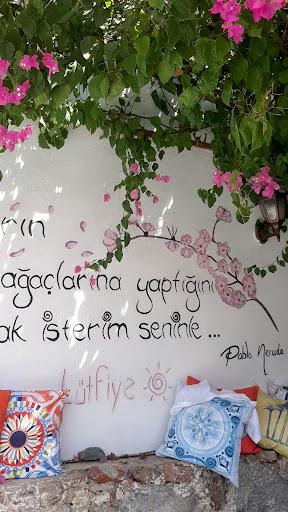 rın
ağaçlarına yaptığını
ak isterim seninle ...
Pablo Neruda
Lütfiye